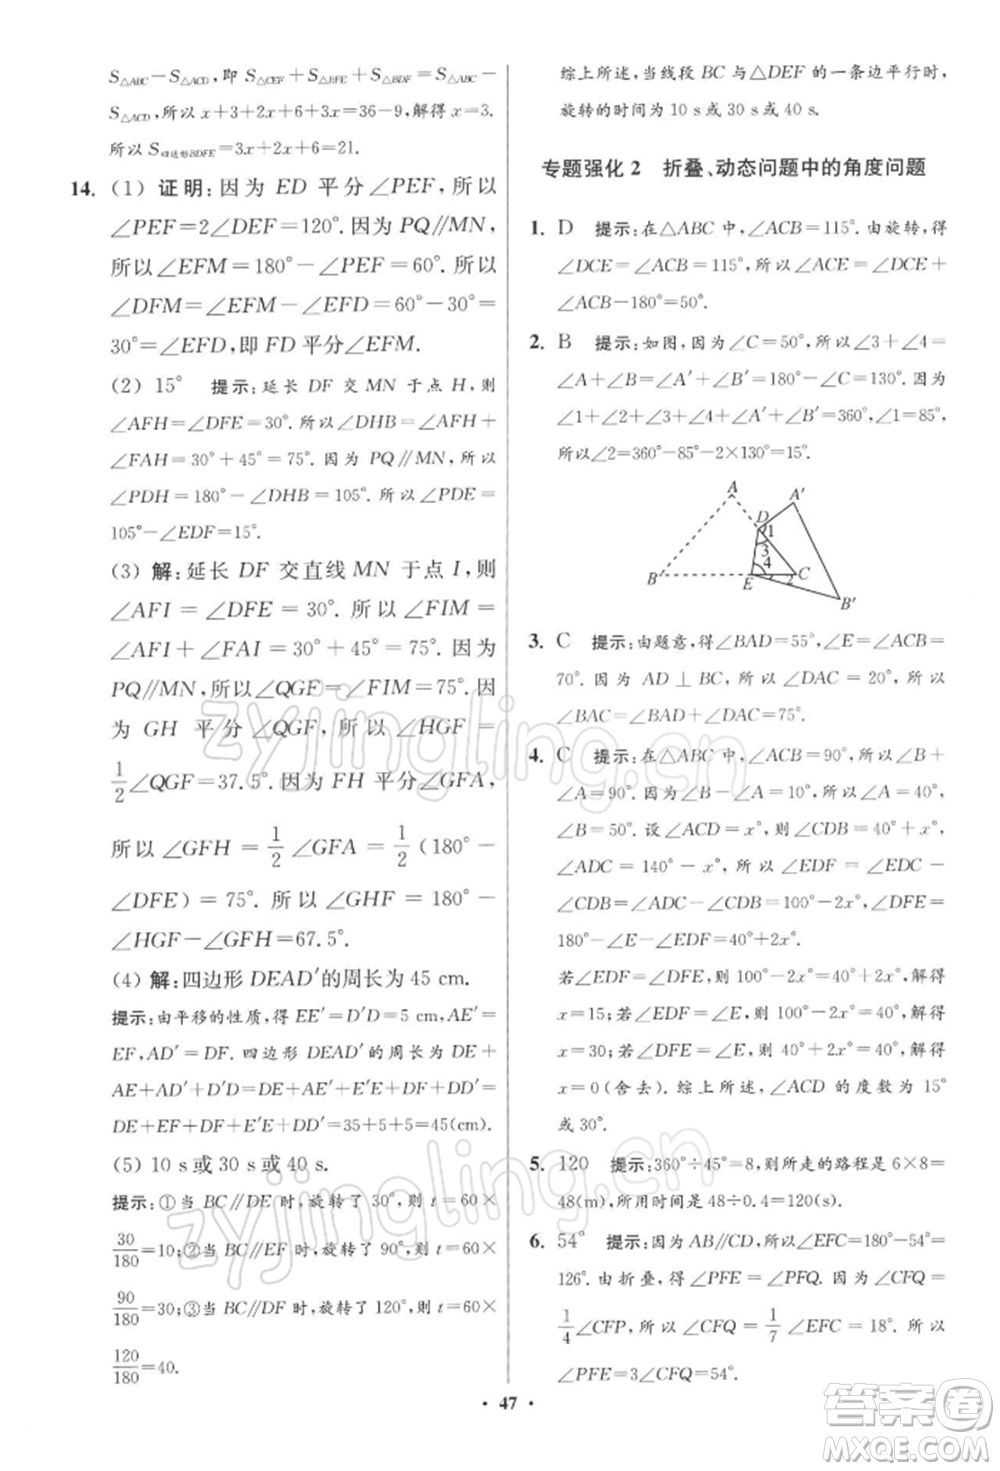 S△ABC－S△ACD，即 S△CEF＋S△BFE＋S△BDF＝S△ABC－
S△ACD，所以 x＋3＋2x＋6＋3x＝36－9，解得 x＝3.
所以 S四边形BDFE＝3x＋2x＋6＝21.
14. (1) 证明：因为 ED 平分∠PEF，所以
∠PEF＝2∠DEF＝120°. 因为 PQ∥MN，
所以∠EFM＝180°－∠PEF＝60°. 所以
∠DFM＝∠EFM－∠EFD＝60°－30°＝
30°＝∠EFD，即 FD 平分∠EFM.
(2) 15° 提示：延长 DF 交 MN 于点 H，则
∠AFH＝∠DFE＝30°. 所以∠DHB＝∠AFH＋
∠FAH＝30°＋45°＝75°. 因为 PQ∥MN，所以
∠PDH＝180°－∠DHB＝105°. 所以∠PDE＝
105°－∠EDF＝15°.
(3) 解：延长 DF 交直线 MN 于点 I，则
∠AFI＝∠DFE＝30°. 所以∠FIM＝
∠AFI＋∠FAI＝30°＋45°＝75°. 因为
PQ∥MN，所以∠QGF＝∠FIM＝75°. 因
为 GH 平分∠QGF，所以∠HGF＝
1/2∠QGF＝37.5°. 因为 FH 平分∠GFA，
所以∠GFH＝1/2∠GFA＝1/2(180°－
∠DFE)＝75°. 所以∠GHF＝180°－
∠HGF－∠GFH＝67.5°.
(4) 解：四边形 DEAD′的周长为 45 cm.
提示：由平移的性质，得 EE′＝D′D＝5 cm，AE′＝
EF，AD′＝DF. 四边形 DEAD′的周长为 DE＋
AE＋AD′＋D′D＝DE＋AE′＋EE′＋AD′＋DD′＝
DE＋EF＋DF＋E′E＋DD′＝35＋5＋5＝45(cm).
(5) 10 s或 30 s或 40 s.
提示：①当 BC∥DE 时，旋转了 30°，则 t＝60×
30/180＝10；②当 BC∥EF 时，旋转了 90°，则 t＝60×
90/180＝30；③当 BC∥DF 时，旋转了 120°，则 t＝60×
120/180＝40.
综上所述，当线段 BC 与△DEF 的一条边平行时，
旋转的时间为 10 s或 30 s或 40 s.
专题强化 2 折叠、动态问题中的角度问题
1. D 提示：在△ABC 中，∠ACB＝115°. 由旋转，得
∠DCE＝∠ACB＝115°，所以∠ACE＝∠DCE＋
∠ACB－180°＝50°.
2. B 提示：如图，因为∠C＝50°，所以∠3＋∠4＝
∠A＋∠B＝∠A′＋∠B′＝180°－∠C＝130°. 因为
∠1＋∠2＋∠3＋∠4＋∠A′＋∠B′＝360°，∠1＝85°，
所以∠2＝360°－85°－2×130°＝15°.
A
A′
D
1
3
4
B
E
2
C
B′
3. C 提示：由题意，得∠BAD＝55°，∠E＝∠ACB＝
70°. 因为 AD⊥BC，所以∠DAC＝20°，所以
∠BAC＝∠BAD＋∠DAC＝75°.
4. C 提示：在△ABC 中，∠ACB＝90°，所以∠B＋
∠A＝90°. 因为∠B－∠A＝10°，所以∠A＝40°，
∠B＝50°. 设∠ACD＝x°，则∠CDB＝40°＋x°，
∠ADC＝140°－x°，所以∠EDF＝∠EDC－
∠CDB＝∠ADC－∠CDB＝100°－2x°，∠DFE＝
180°－∠E－∠EDF＝40°＋2x°.
若∠EDF＝∠DFE，则 100°－2x°＝40°＋2x°，解得
x＝15；若∠EDF＝∠E，则 100°－2x°＝40°，解得
x＝30；若∠DFE＝∠E，则 40°＋2x°＝40°，解得
x＝0(舍去). 综上所述，∠ACD 的度数为 15°
或 30°.
5. 120 提示：360°÷45°＝8，则所走的路程是 6×8＝
48(m)，所用时间是 48÷0.4＝120(s).
6. 54° 提示：因为 AB∥CD，所以∠EFC＝180°－54°＝
126°. 由折叠，得∠PFE＝∠PFQ. 因为∠CFQ＝
1/4∠CFP，所以∠CFQ＝1/7∠EFC＝18°. 所以
∠PFE＝3∠CFQ＝54°.
• 47 •
zyjingling.cn
zyjingling.cn
答案圈
MXQE.COM